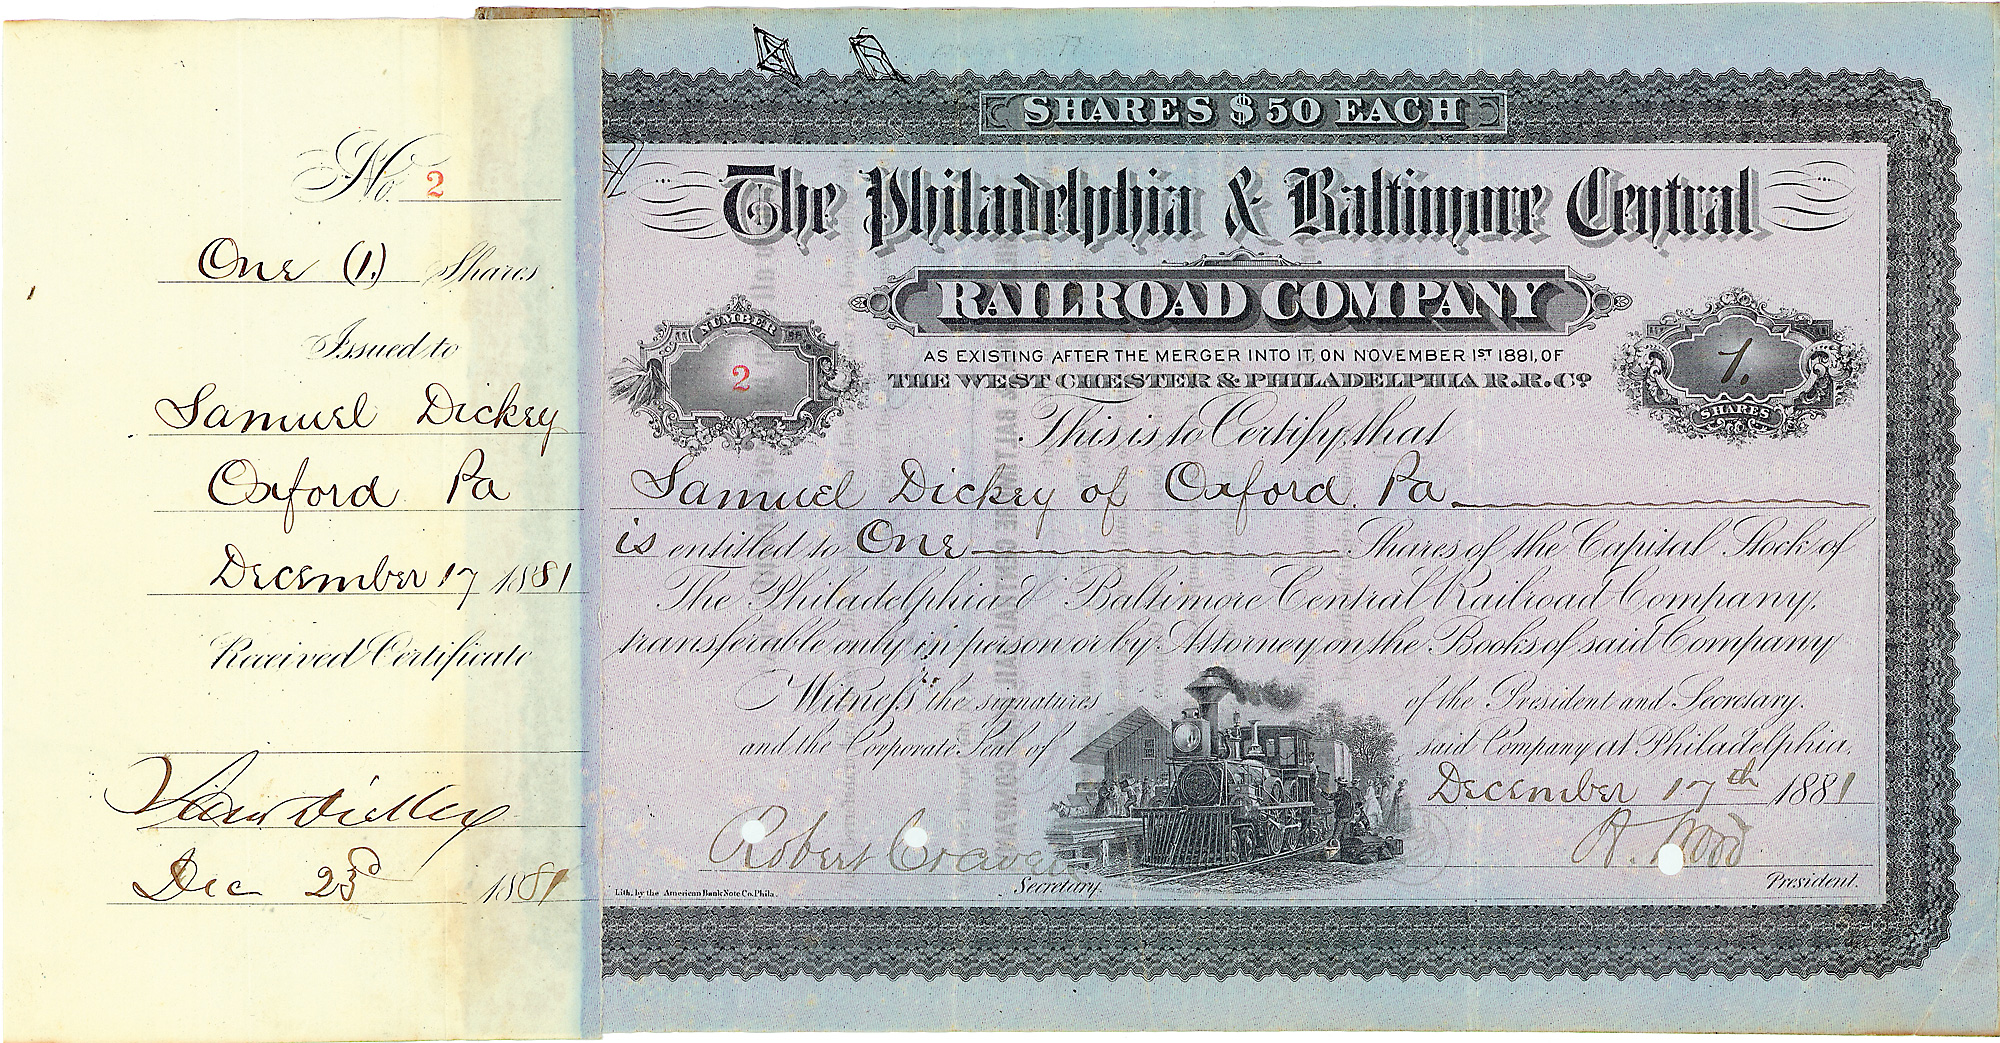 No. 2
One (1.) Shares
Issued to
Samuel Dickey
Oxford Pa
December 17 1881
Received Certificate
Dickey
Dec 23d 1881
SHARES $50 EACH
The Philadelphia & Baltimore Central
RAILROAD COMPANY
AS EXISTING AFTER THE MERGER INTO IT, ON NOVEMBER 1ST 1881, OF
THE WEST CHESTER & PHILADELPHIA R.R. Co
NUMBER
2
1.
SHARES
This is to Certify that
Samuel Dickey of Oxford. Pa
is entitled to One Shares of the Capital Stock of
The Philadelphia & Baltimore Central Railroad Company,
transferable only in person or by Attorney on the Books of said Company
Witness the signatures of the President and Secretary,
and the Corporate Seal of said Company at Philadelphia,
December 17th 1881
Robert Craven
Secretary.
A. Wood
President.
Lith. by the American Bank Note Co. Phila.